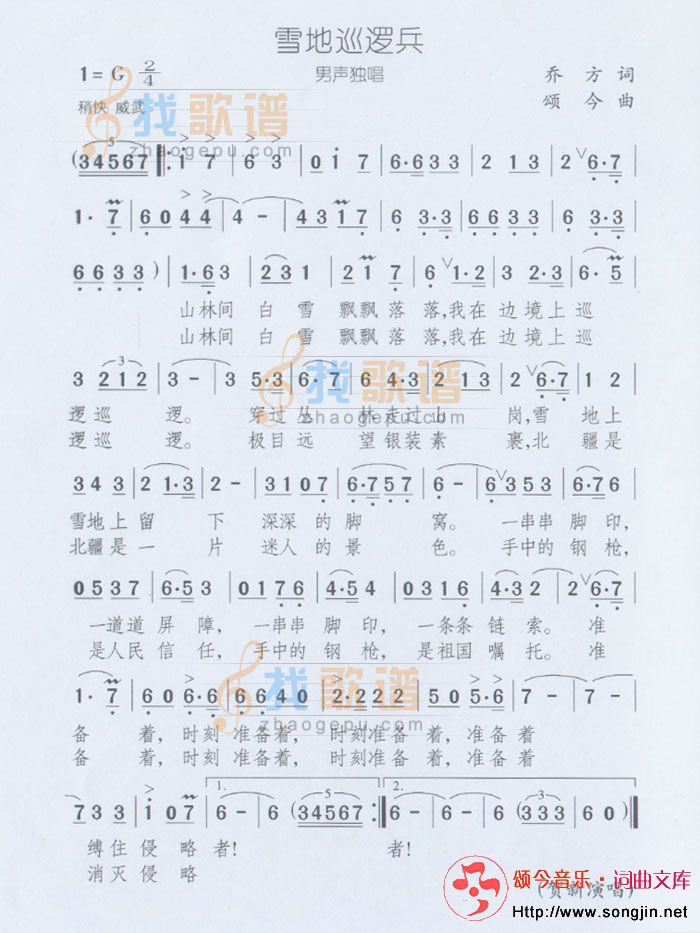 雪地巡逻兵
1=G 2/4
男声独唱
乔方词
稍快 威武
颂今曲
找歌谱
zhaogepu.com
(34567 ‖: i 7 | 6 3 | 0 i 7 | 6·6 3 3 | 2 1 3 | 2 ∨ 6·7 |
1· 7 | 6 0 4 4 | 4 - | 4 3 1 7 | 6 3·3 | 6 6 3 3 | 6 3·3 |
6 6 3 3 ) | 1·6 3 | 2 3 1 | 2 1 7 | 6 ∨ 1·2 | 3 2·3 | 6·5 |
山林间 白 雪 飘飘 落 落,我在 边境上 巡
山林间 白 雪 飘飘 落 落,我在 边境上 巡
3 2 1 2 | 3 - | 5·3 | 6·7 | 6 4·3 | 2 1 3 | 2 ∨ 6·7 | 1 2 |
逻巡 逻。 穿过 丛 林走过山 岗,雪 地上
逻巡 逻。 极目 远 望银装素 裹,北 疆是
找歌谱
zhaogepu.com
3 4 3 | 2 1·3 | 2 - | 3 1 0 7 | 6·7 5 7 | 6 - | 6 ∨ 6·3 5 3 | 6·7 6 |
雪地上 留 下 深深 的 脚 窝。 一串串 脚印,
北疆是 一 片 迷人 的 景 色。 手中的 钢枪,
0 5 3 7 | 6·5 3 | 0 1 7 6 | 4·5 4 | 0 3 1 6 | 4·3 2 | 2 ∨ 6·7 |
一道道 屏 障, 一串串 脚 印, 一条条 链 索。 准
是人民 信 任, 手中的 钢 枪, 是祖国 嘱 托。 准
1· 7 | 6 0 6·6 | 6 6 4 0 | 2·2 2 2 | 5 0 5·6 | 7 - | 7 - |
找歌谱
zhaogepu.com
备 着, 时刻 准备着, 时刻准备 着, 准备着
备 着, 时刻 准备着, 时刻准备 着, 准备着
7 3 3 | i 0 7 | 1. 6 - | 6 (34567 :‖ 2. 6 - | 6 - | 6 (3 3 3 | 6 0 ) ‖
缚住 侵 略 者! 者!
消灭 侵 略
(贺新演唱)
颂今音乐·词曲文库
www.songjin.net